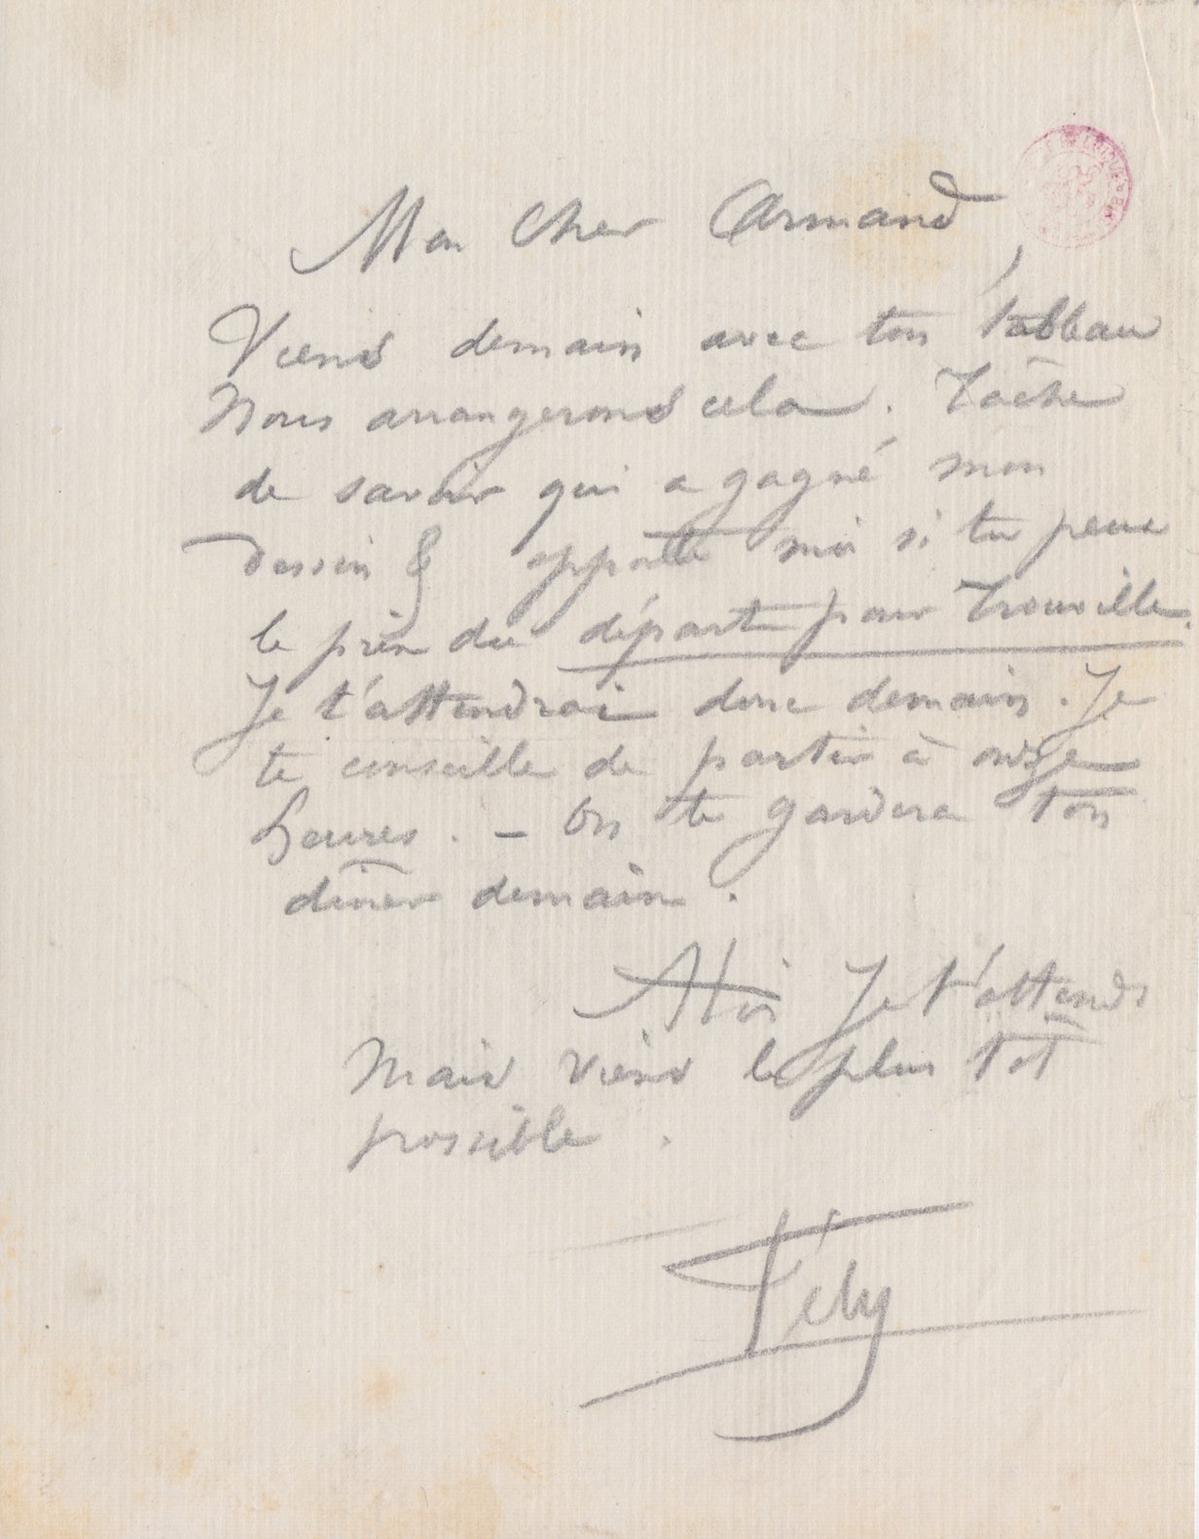 Mon Cher Armand,
Viens demain avec ton tableau
Nous arrangerons cela. Tâche
de savoir qui a gagné mon
dessin & apporte moi si tu peux
le prix du départ pour Trouville.
Je t'attendrai donc demain. Je
te conseille de partir à onze
heures. — On te gardera ton
dîner demain.
Je t'attends
Mais viens le plus tôt
possible.
Fély